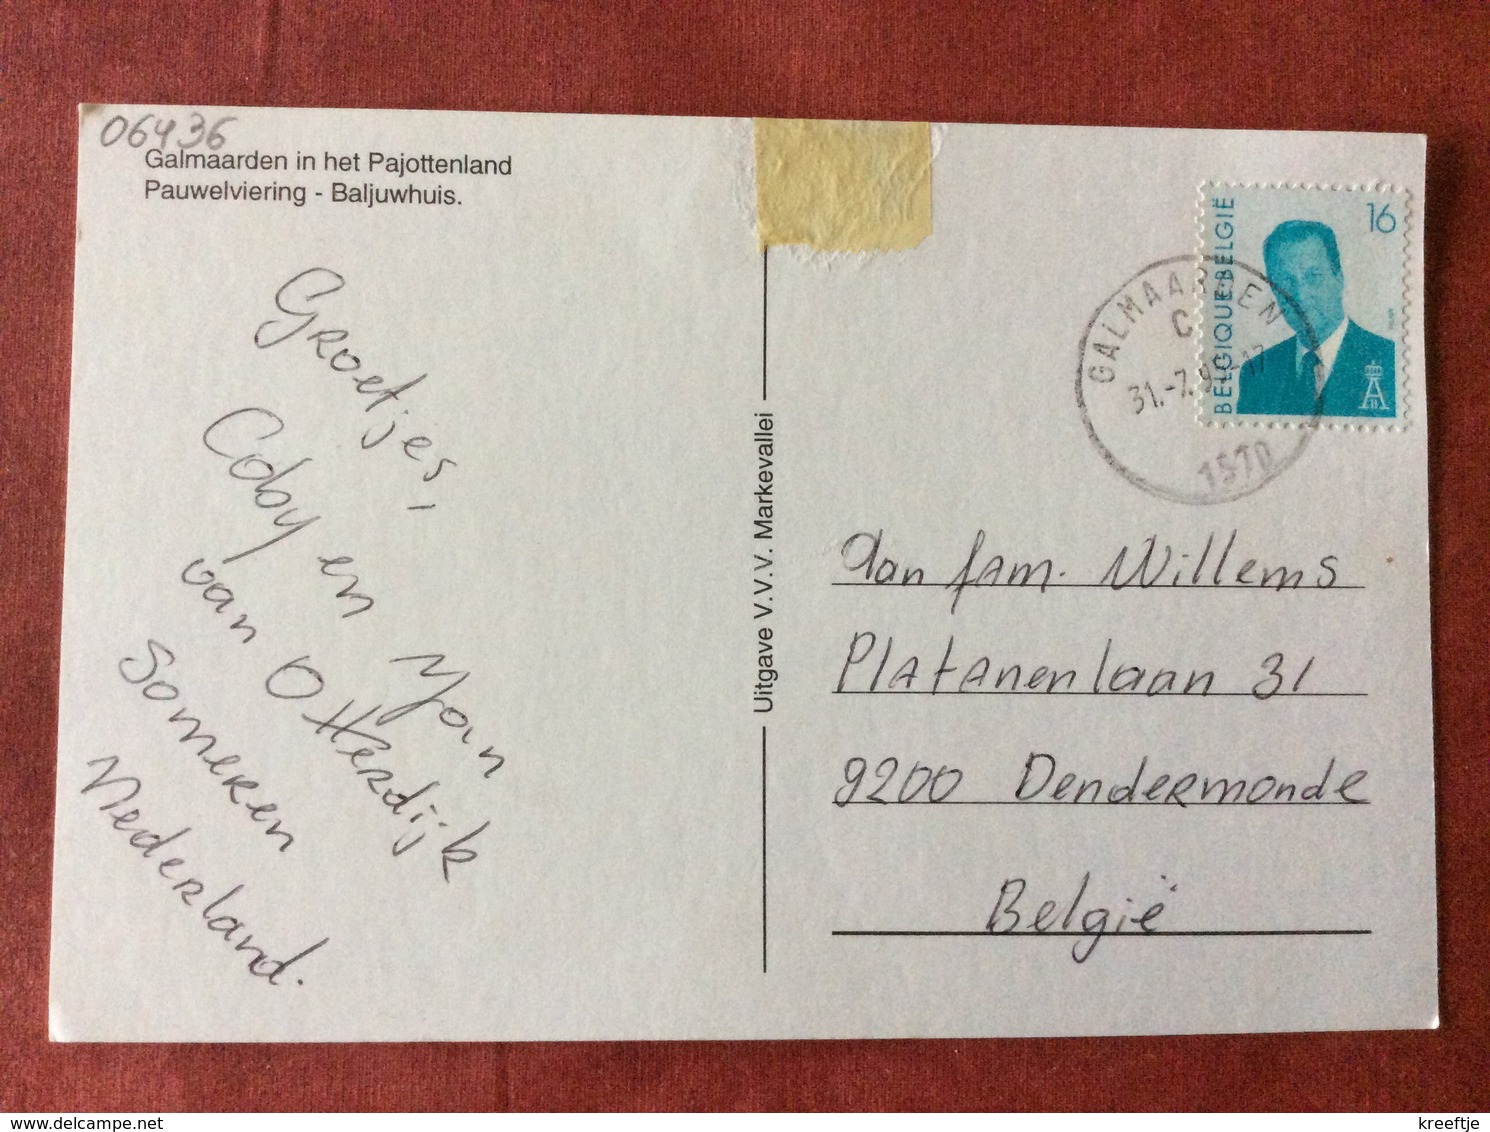 06436
Galmaarden in het Pajottenland
Pauwelviering - Baljuwhuis.
Groetjes,
Coby en Jan
van Otterdijk
Someren
Nederland.
Uitgave V.V.V. Markevallei
BELGIQUE-BELGIË
16
GALMAARDEN
C
31.-7.9 -17
1570
Aan fam. Willems
Platanenlaan 31
9200 Dendermonde
België
delcampe.net
kreeftje